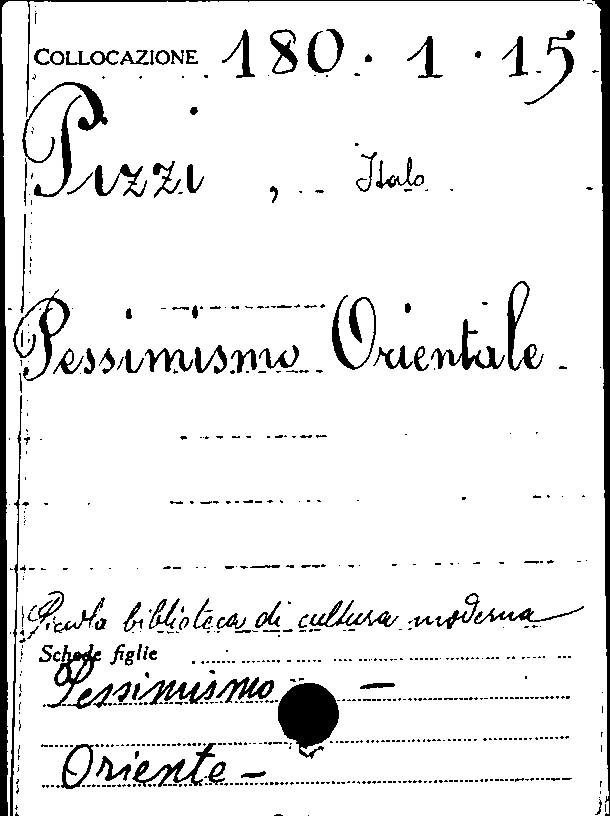 COLLOCAZIONE 180 · 1 · 15
Pizzi , Italo
Pessimismo Orientale
Piccola biblioteca di cultura moderna
Schede figlie
Pessimismo –
Oriente –